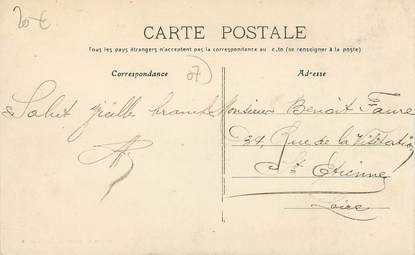 20 €
CARTE POSTALE
Tous les pays étrangers n'acceptent pas la correspondance au recto (se renseigner à la poste)
Correspondance
07
Adresse
Salut Vieille branche
Monsieur Benoit Faure
34 Rue de la Visitation
St Étienne
Loire